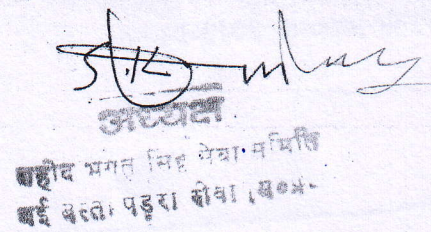 अध्यक्ष
शहीद भगत सिंह सेवा समिति
नई बस्ती पड़रा रीवा म०प्र०